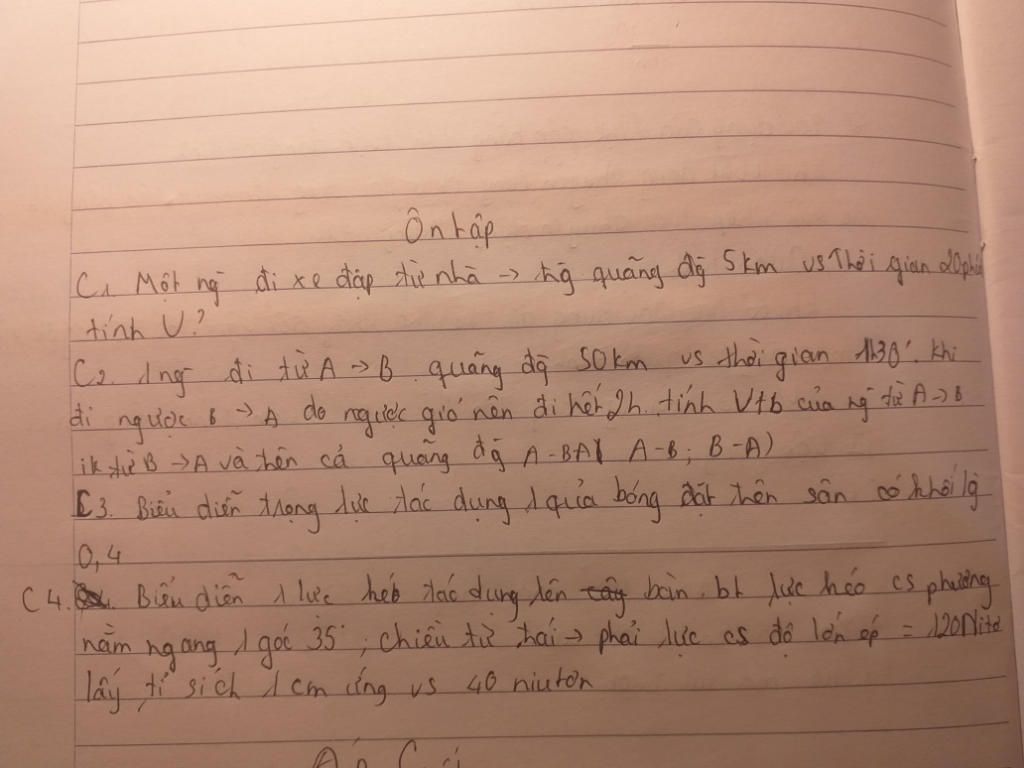 Ôn tập
C1. Một ng̃ đi xe đạp từ nhà → tr̃g quãng đg̃ 5km vs Thời gian 20phút
tính V?
C2. 1 ng̃ đi từ A → B quãng đg̃ 50km vs thời gian 1h30'. khi
đi ngược B → A do ngược gió nên đi hết 2h. tính Vtb của ng̃ từ A → B
ik từ B → A và trên cả quãng đg̃ A-BA( A-B; B-A)
C3. Biểu diễn trọng lực tác dụng 1 quả bóng đặt trên sân có khối lg̃
0,4
C4. Biểu diễn 1 lực kéo tác dụng lên bàn. bt lực kéo cs phương
nằm ngang 1 góc 35°, chiều từ trái → phải lực cs độ lớn = 120Nitơ
lấy tỉ sích 1 cm ứng vs 40 niutơn